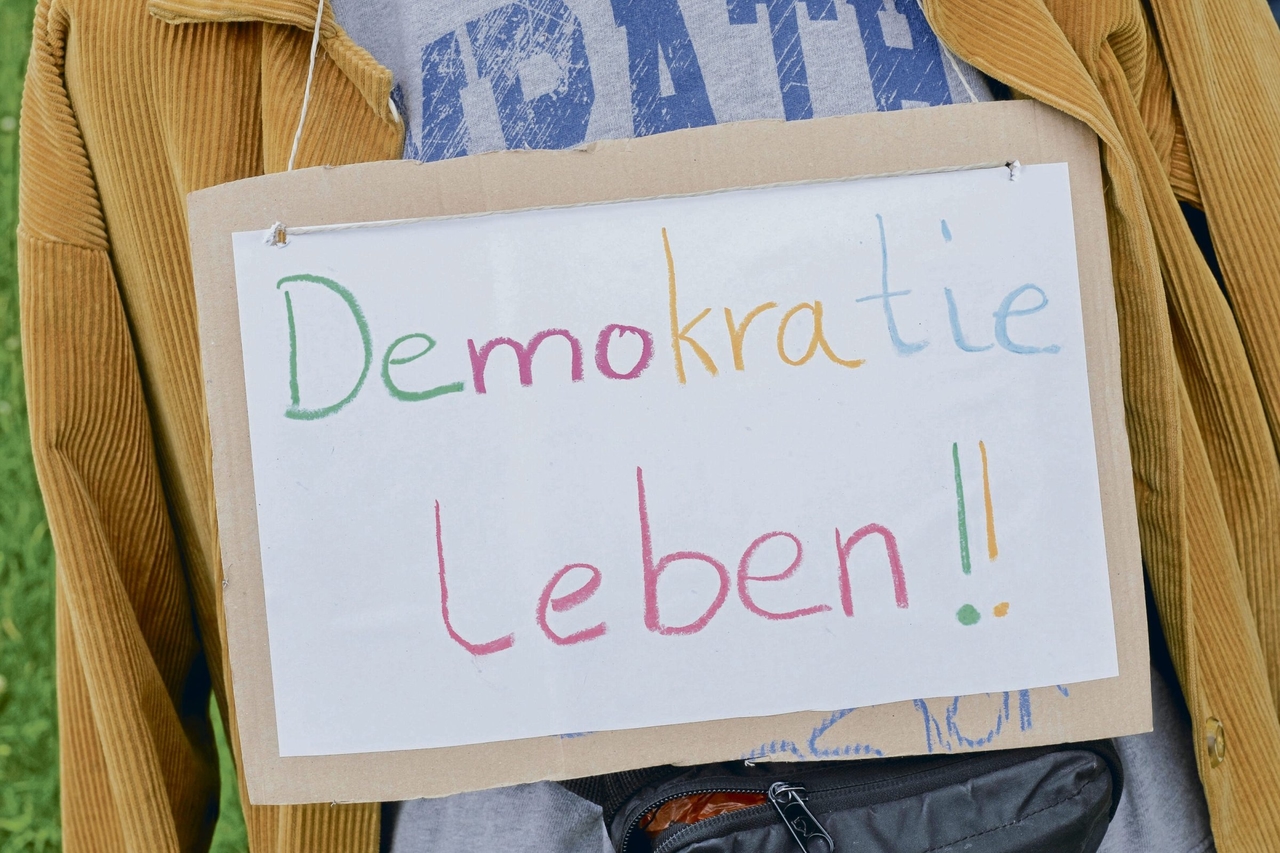 Demokratie
Leben!!